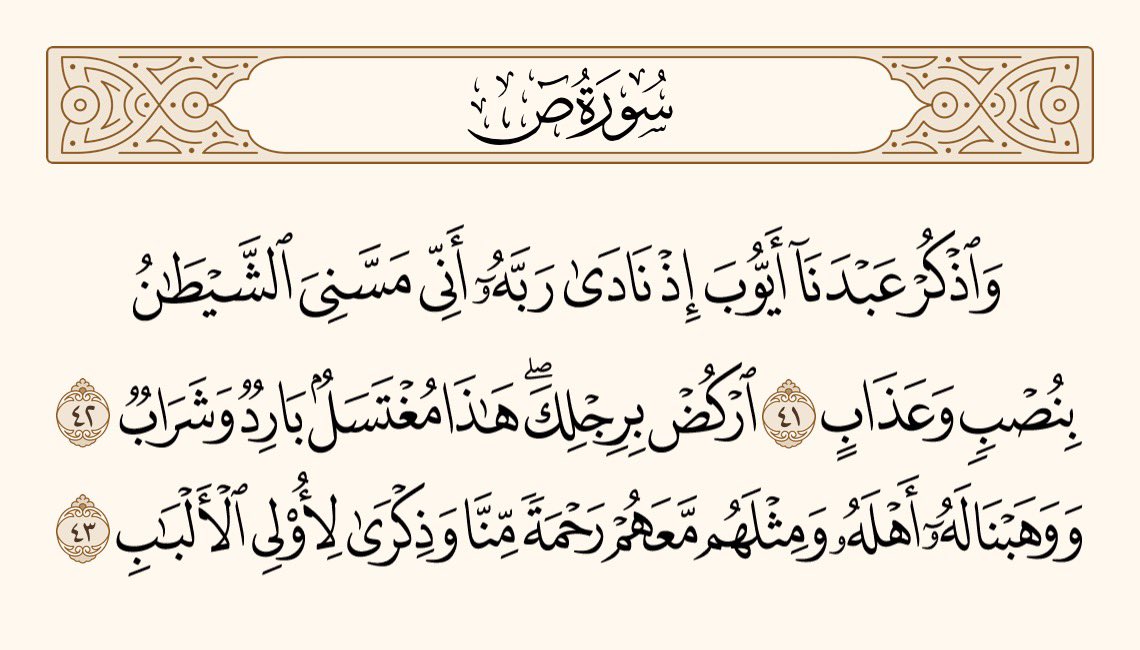 سُورَةُ صٓ
وَٱذْكُرْ عَبْدَنَآ أَيُّوبَ إِذْ نَادَىٰ رَبَّهُۥٓ أَنِّى مَسَّنِىَ ٱلشَّيْطَٰنُ
بِنُصْبٍ وَعَذَابٍ ٤١ ٱرْكُضْ بِرِجْلِكَ ۖ هَٰذَا مُغْتَسَلٌۢ بَارِدٌ وَشَرَابٌ ٤٢
وَوَهَبْنَا لَهُۥٓ أَهْلَهُۥ وَمِثْلَهُم مَّعَهُمْ رَحْمَةً مِّنَّا وَذِكْرَىٰ لِأُو۟لِى ٱلْأَلْبَٰبِ ٤٣